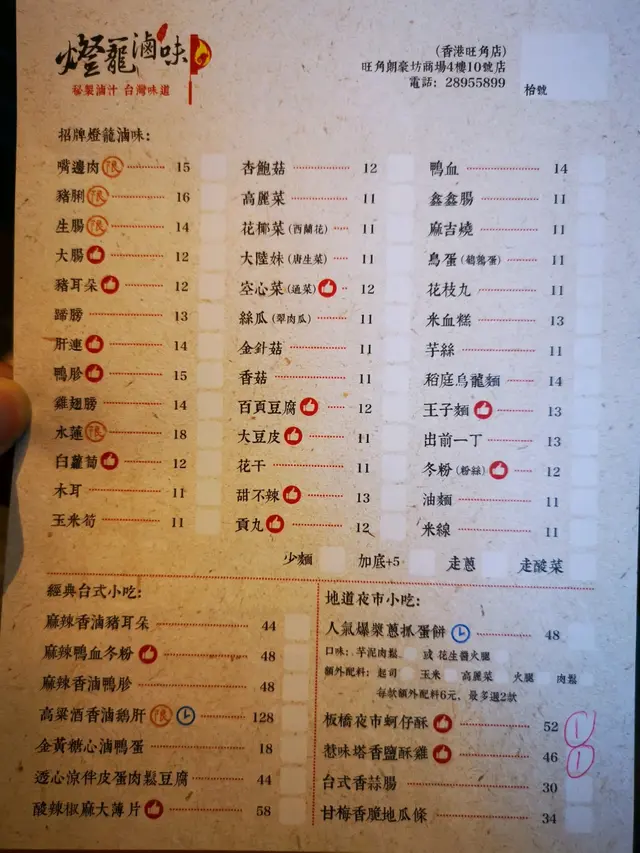 燈籠滷味
秘製滷汁 台灣味道
(香港旺角店)
旺角朗豪坊商場4樓10號店
電話: 28955899
枱號
招牌燈籠滷味:
嘴邊肉 限 15
豬脷 限 16
生腸 限 14
大腸 12
豬耳朵 12
蹄膀 13
肝連 14
鴨胗 15
雞翅膀 14
水蓮 限 18
白蘿蔔 12
木耳 11
玉米筍 11
杏鮑菇 12
高麗菜 11
花椰菜(西蘭花) 11
大陸妹(唐生菜) 11
空心菜(通菜) 12
絲瓜(翠肉瓜) 11
金針菇 11
香菇 11
百頁豆腐 12
大豆皮 11
花干 11
甜不辣 13
貢丸 12
鴨血 14
鑫鑫腸 11
麻吉燒 11
鳥蛋(鵪鶉蛋) 11
花枝丸 11
米血糕 13
芋絲 11
稻庭烏龍麵 14
王子麵 13
出前一丁 13
冬粉(粉絲) 12
油麵 11
米線 11
少麵 加底+5 走蔥 走酸菜
經典台式小吃:
麻辣香滷豬耳朵 44
麻辣鴨血冬粉 48
麻辣香滷鴨胗 48
高粱酒香滷鵝肝 限 128
金黃糖心滷鴨蛋 18
透心涼伴皮蛋肉鬆豆腐 44
酸辣椒麻大薄片 58
地道夜市小吃:
人氣爆漿蔥抓蛋餅 48
口味: 芋泥肉鬆 或 花生醬火腿
額外配料: 起司 玉米 高麗菜 火腿 肉鬆
每款額外配料6元, 最多選2款
板橋夜市蚵仔酥 52 1
惹味塔香鹽酥雞 46 1
台式香蒜腸 30
甘梅香脆地瓜條 34